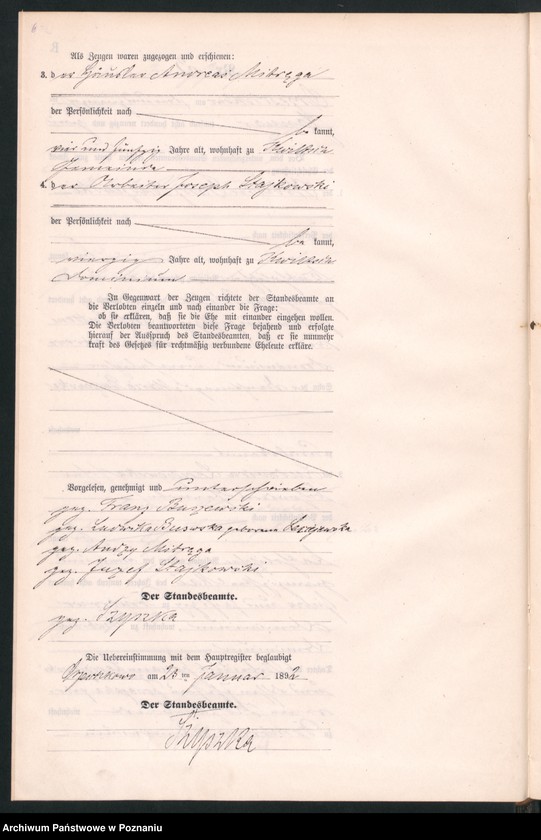 Als Zeugen waren zugezogen und erschienen:
3. der Häusler Andreas Mibręga
der Persönlichkeit nach
be kannt,
vier und fünfzig Jahre alt, wohnhaft zu
Gemeinde
4. der Arbeiter Joseph Stajkowski
der Persönlichkeit nach
be kannt,
vierzig Jahre alt, wohnhaft zu
Dominium
In Gegenwart der Zeugen richtete der Standesbeamte an
die Verlobten einzeln und nach einander die Frage:
ob sie erklären, daß sie die Ehe mit einander eingehen wollen.
Die Verlobten beantworteten diese Frage bejahend und erfolgte
hierauf der Ausspruch des Standesbeamten, daß er sie nunmehr
kraft des Gesetzes für rechtmäßig verbundene Eheleute erkläre.
Vorgelesen, genehmigt und unterschrieben
gez. Franz
gez. Ludwika geborene
gez. Andrzy Mibręga
gez. Juzef Stajkowski
Der Standesbeamte.
gez. Szyszka
Die Uebereinstimmung mit dem Hauptregister beglaubigt
am 23 ten Januar 1892
Der Standesbeamte.
Szyszka
Archiwum Państwowe w Poznaniu